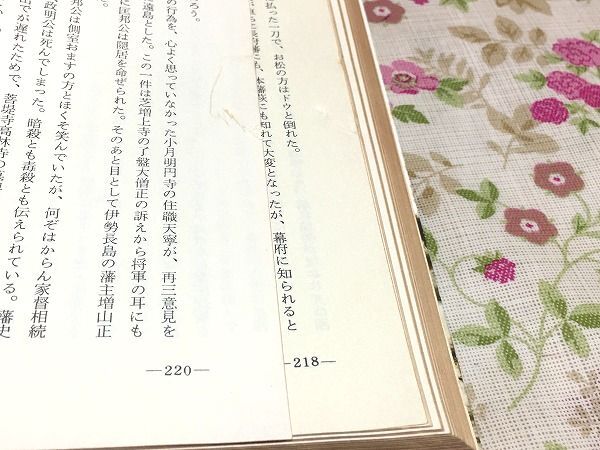 払った一刀で、お松の方はドウと倒れた。
に長府藩にも、本藩萩にも知れて大変となったが、幕府に知られると
―218―
ろう。
の行為を、心よく思っていなかった小月明円寺の住職天寧が、再三意見を
遠島とした。この一件は芝増上寺の了盤大僧正の訴えから将軍の耳にも
に匡邦公は隠居を命ぜられた。そのあと目として伊勢長島の藩主増山正
邦公は側室おますの方とほくそ笑んでいたが、何ぞはからん家督相続
政明公は死んでしまった。暗殺とも毒殺とも伝えられている。藩史
出でが遅れたためで、菩提寺高林寺の
―220―